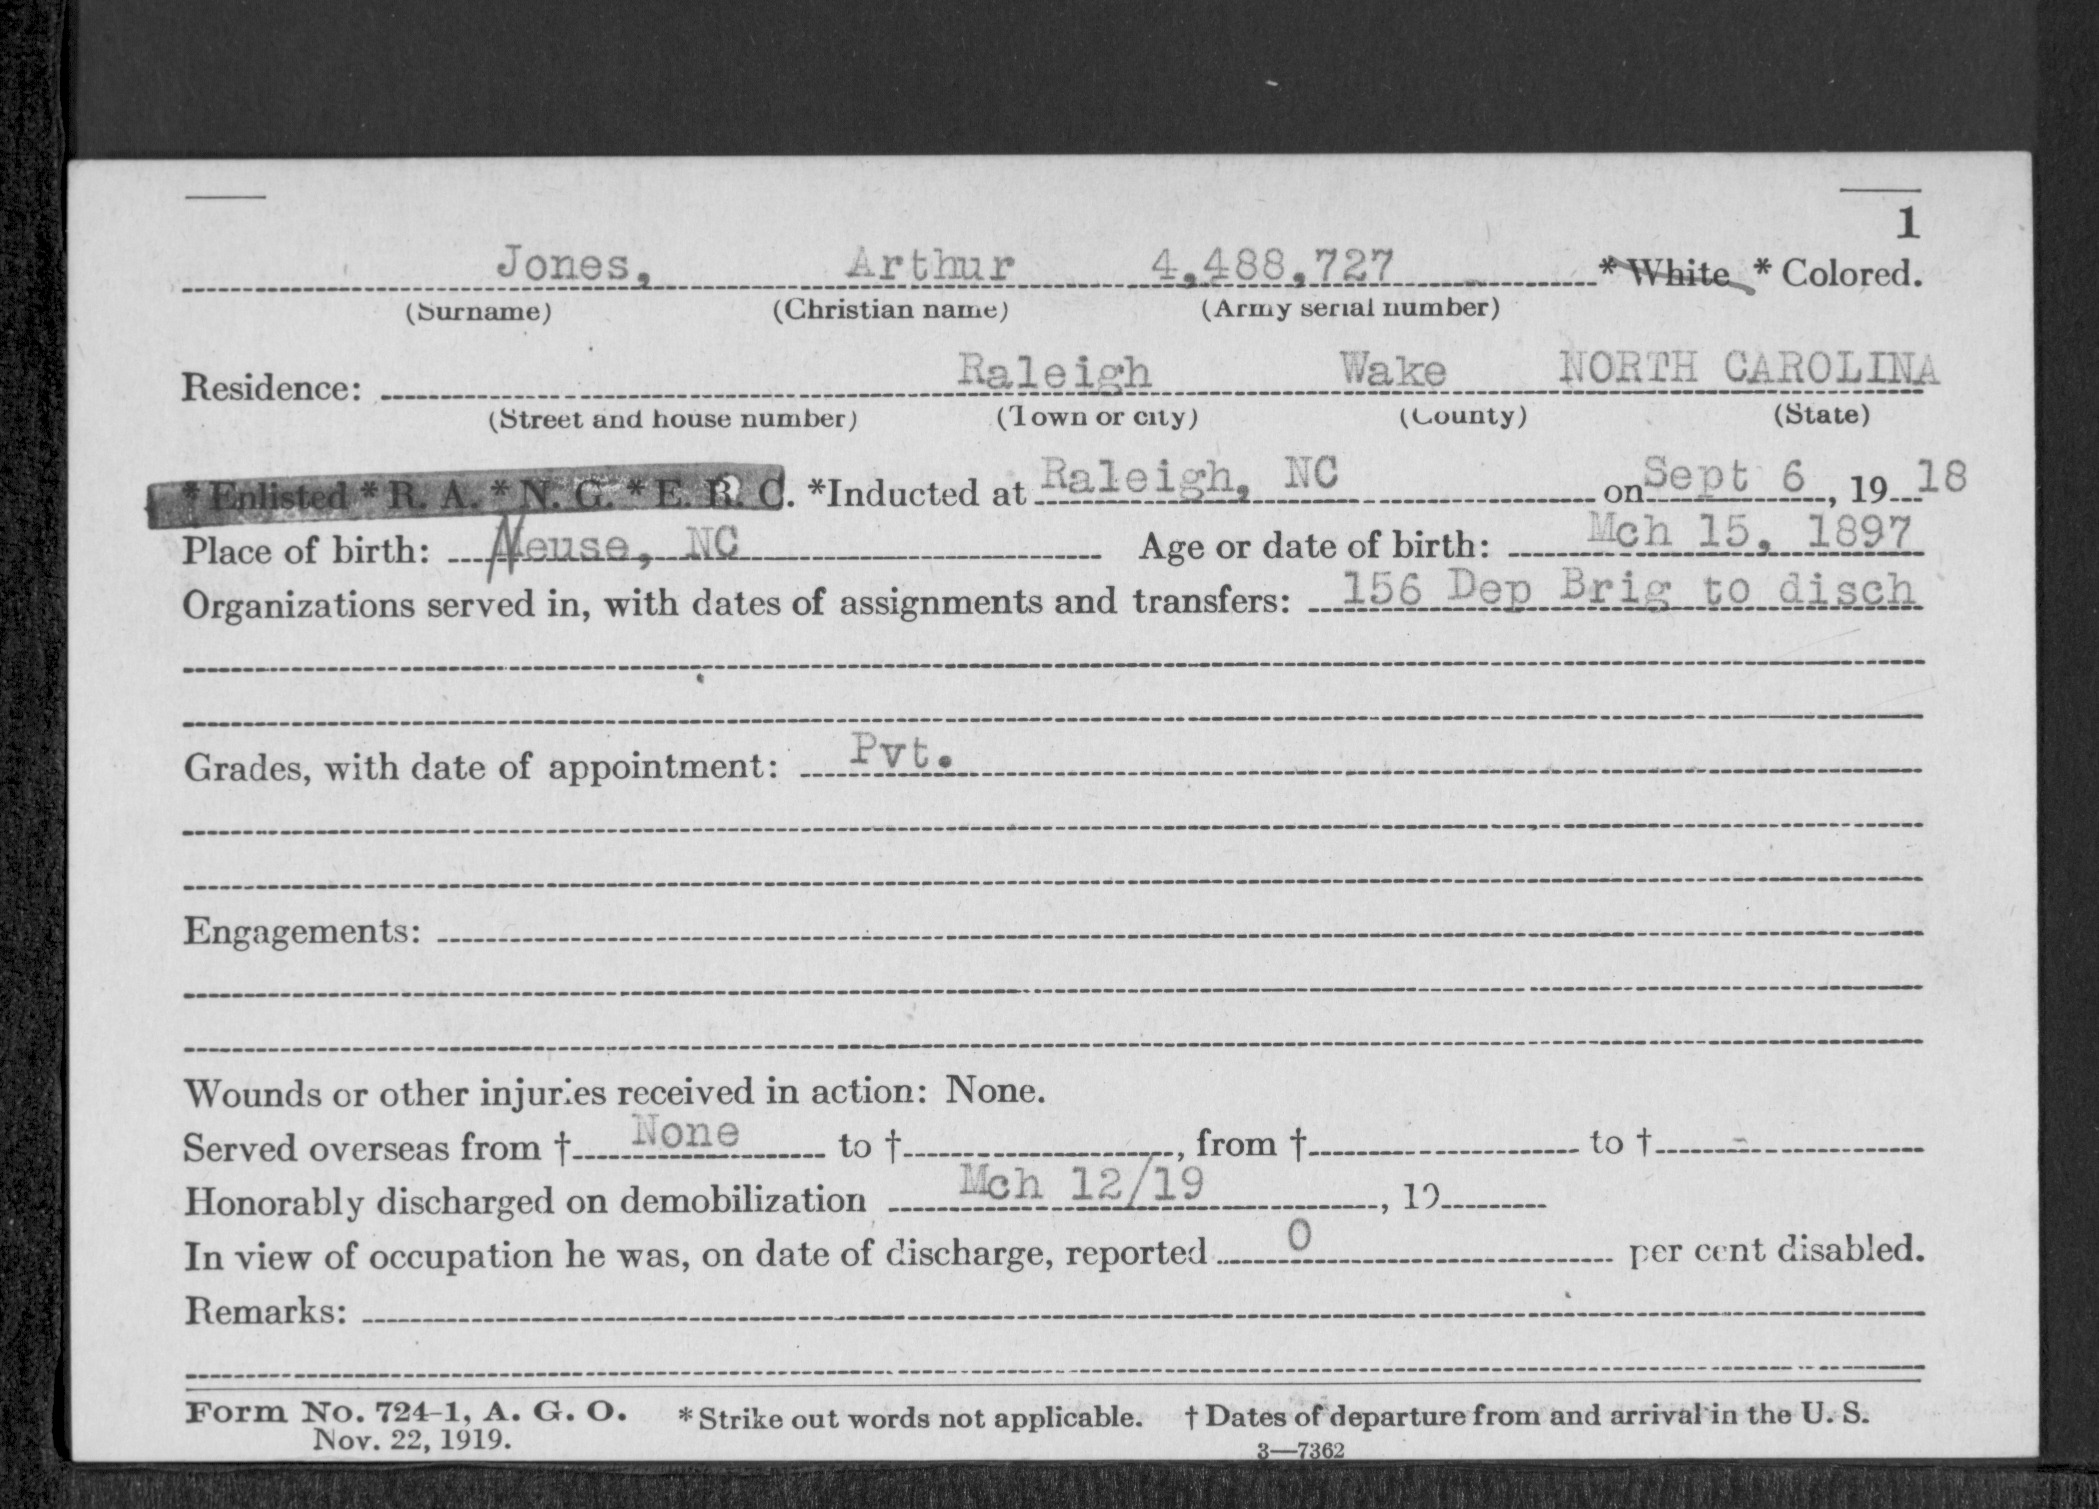 1
Jones, Arthur 4,488,727 * White * Colored.
(Surname) (Christian name) (Army serial number)
Residence: Raleigh Wake NORTH CAROLINA
(Street and house number) (Town or city) (County) (State)
* Enlisted * R. A. * N. G. * E. R. C. *Inducted at Raleigh, NC on Sept 6, 19 18
Place of birth: Neuse, NC Age or date of birth: Mch 15, 1897
Organizations served in, with dates of assignments and transfers: 156 Dep Brig to disch
Grades, with date of appointment: Pvt.
Engagements:
Wounds or other injuries received in action: None.
Served overseas from † None to † , from † to † -
Honorably discharged on demobilization Mch 12/19 , 19
In view of occupation he was, on date of discharge, reported 0 per cent disabled.
Remarks:
Form No. 724-1, A. G. O. * Strike out words not applicable. † Dates of departure from and arrival in the U. S.
Nov. 22, 1919. 3—7362